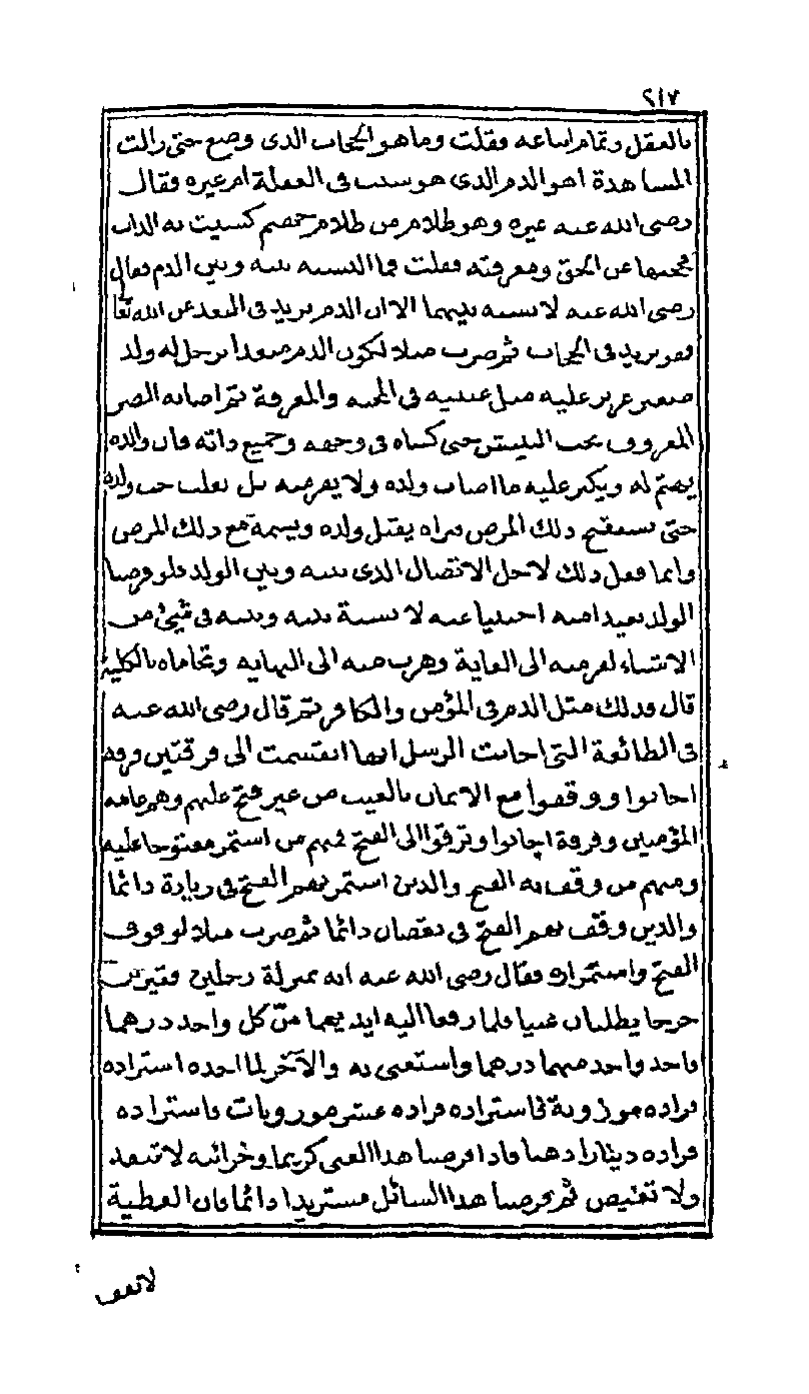 ٢١٧
بالعقل وتمام اساعه فقلت وما هو الحجاب الذى وضع حتى زالت
المشاهدة اهو الدم الذى هو سبب فى الغفلة ام غيره فقال
رضى الله عنه غيره وهو ظلام من ظلام جهنم كسيت به الذات
فحجبها عن الحق ومعرفته فقلت فما النسبة بينه وبين الدم فقال
رضى الله عنه لا نسبة بينهما الا ان الدم يزيد فى البعد عن الله تعا
فهو يزيد فى الحجاب ثم ضرب مثلا لكون الدم مبعدا برجل له ولد
صغير عزيز عليه مثل عينيه فى المحبة والمعرفة ثم اصابه الضر
المعروف بحب حتى كساه فى وجهه وجميع ذاته فان والده
يهتم له ويكبر عليه ما اصاب ولده ولا يفر منه بل يغلب حب ولده
حتى يستقبح ذلك المرض فتراه يقبل ولده ويشمه مع ذلك المرض
وانما فعل ذلك لاجل الاتصال الذى بينه وبين الولد فلو فرضنا
الولد بعيدا منه اجنبيا عنه لا نسبة بينه وبينه فى شيئ من
الاشياء لفر منه الى الغاية وهرب منه الى النهاية وتحاماه بالكلية
قال فذلك مثل الدم فى المؤمن والكافر ثم قال رضى الله عنه
فى الطائفة التى اجابت الرسل انها انقسمت الى فرقتين فرقة
اجابوا ووقفوا مع الايمان بالغيب من غير فتح عليهم وهم عامه
المؤمنين وفرقة اجابوا وترقوا الى الفتح فمنهم من استمر مفتوحا عليه
ومنهم من وقف به الفتح والذين استمر بهم الفتح فى زيادة دائما
والذين وقف بهم الفتح فى نقصان دائما ثم ضرب مثلا لوقوف
الفتح واستمراره فقال رضى الله عنه انه بمنزلة رجلين فقيرين
خرجا يطلبان غنيا فلما رفعا اليه ايديهما من كل واحد درهما
فاخذ واحد منهما درهما واستغنى به والآخر لما اخذه استزاده
فزاده موزونة فاستزاده فزاده عشر موزونات فاستزاده
فزاده دينارا ذهبا فاذا فرضنا هذا الغنى كريما وخزائنه لا تنفد
ولا تغيض ثم فرضنا هذا السائل مستزيدا دائما فان العطية
لا تقف